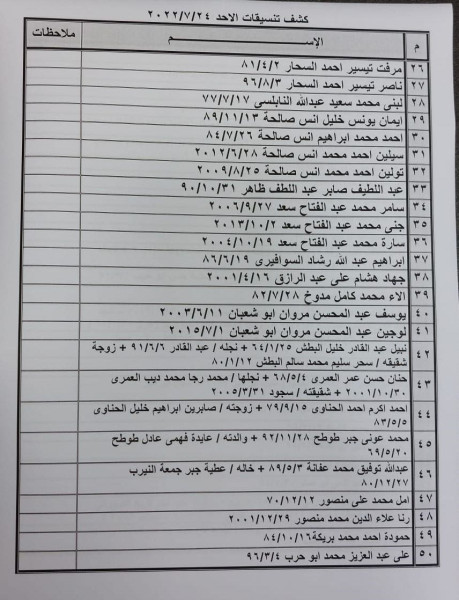 كشف تنسيقات الاحد ٢٠٢٢/٧/٢٤
م الإســـــم ملاحظات
٢٦ مرفت تيسير احمد السحار ٨١/٤/٢
٢٧ ناصر تيسير احمد السحار ٩٦/٨/٣
٢٨ لبنى محمد سعيد عبدالله النابلسي ٧٧/٧/١٧
٢٩ ايمان يونس خليل انس صالحة ٨٩/١١/١٣
٣٠ احمد محمد ابراهيم انس صالحة ٨٤/٧/٢٦
٣١ سيلين احمد محمد انس صالحة ٢٠١٢/٦/٢٨
٣٢ تولين احمد محمد انس صالحة ٢٠٠٩/٨/٢٥
٣٣ عبد اللطيف صابر عبد اللطف ظاهر ٩٠/١٠/٣١
٣٤ سامر محمد عبد الفتاح سعد ٢٠٠٦/٩/٢٧
٣٥ جنى محمد عبد الفتاح سعد ٢٠١٣/١٠/٢
٣٦ سارة محمد عبد الفتاح سعد ٢٠٠٤/١٠/١٩
٣٧ ابراهيم عبد الله رشاد السوافيرى ٨٦/٦/١٩
٣٨ جهاد هشام على عبد الرازق ٢٠٠١/٤/١٦
٣٩ الاء محمد كامل مدوخ ٨٢/٧/٢٨
٤٠ يوسف عبد المحسن مروان ابو شعبان ٢٠٠٣/٦/١١
٤١ لوجين عبد المحسن مروان ابو شعبان ٢٠١٥/٧/١
٤٢ نبيل عبد القادر خليل البطش ٦٤/١/٢٥ + نجله / عبد القادر ٩١/٦/٦ + زوجة
شقيقته / سحر سليم محمد سالم البطش ٨٠/١/١٢
٤٣ حنان حسن عمر العمرى ٦٨/٥/٤ + نجلها / محمد رجا محمد ديب العمرى
٢٠٠١/١٠/٣٠ + شقيقته / سجود ٢٠٠٥/٣/٣١
٤٤ احمد اكرم احمد الحناوى ٧٩/٩/١٥ + زوجته / صابرين ابراهيم خليل الحناوى
٨٣/٥/٥
٤٥ محمد عونى جبر طوطح ٩٢/١١/٢٨ + والدته / عايدة فهمى عادل طوطح
٦٩/٥/٢٠
٤٦ عبدالله توفيق محمد عفانة ٨٩/٥/٣ + خاله / عطية جبر جمعة النيرب
٨٠/١٢/٢٧
٤٧ امل محمد على منصور ٧٠/١٢/١٢
٤٨ رنا علاء الدين محمد منصور ٢٠٠١/١٢/٢٩
٤٩ حمودة احمد محمد بريكة ٨٤/١٠/١٦
٥٠ على عبد العزيز محمد ابو حرب ٩٦/٣/٤